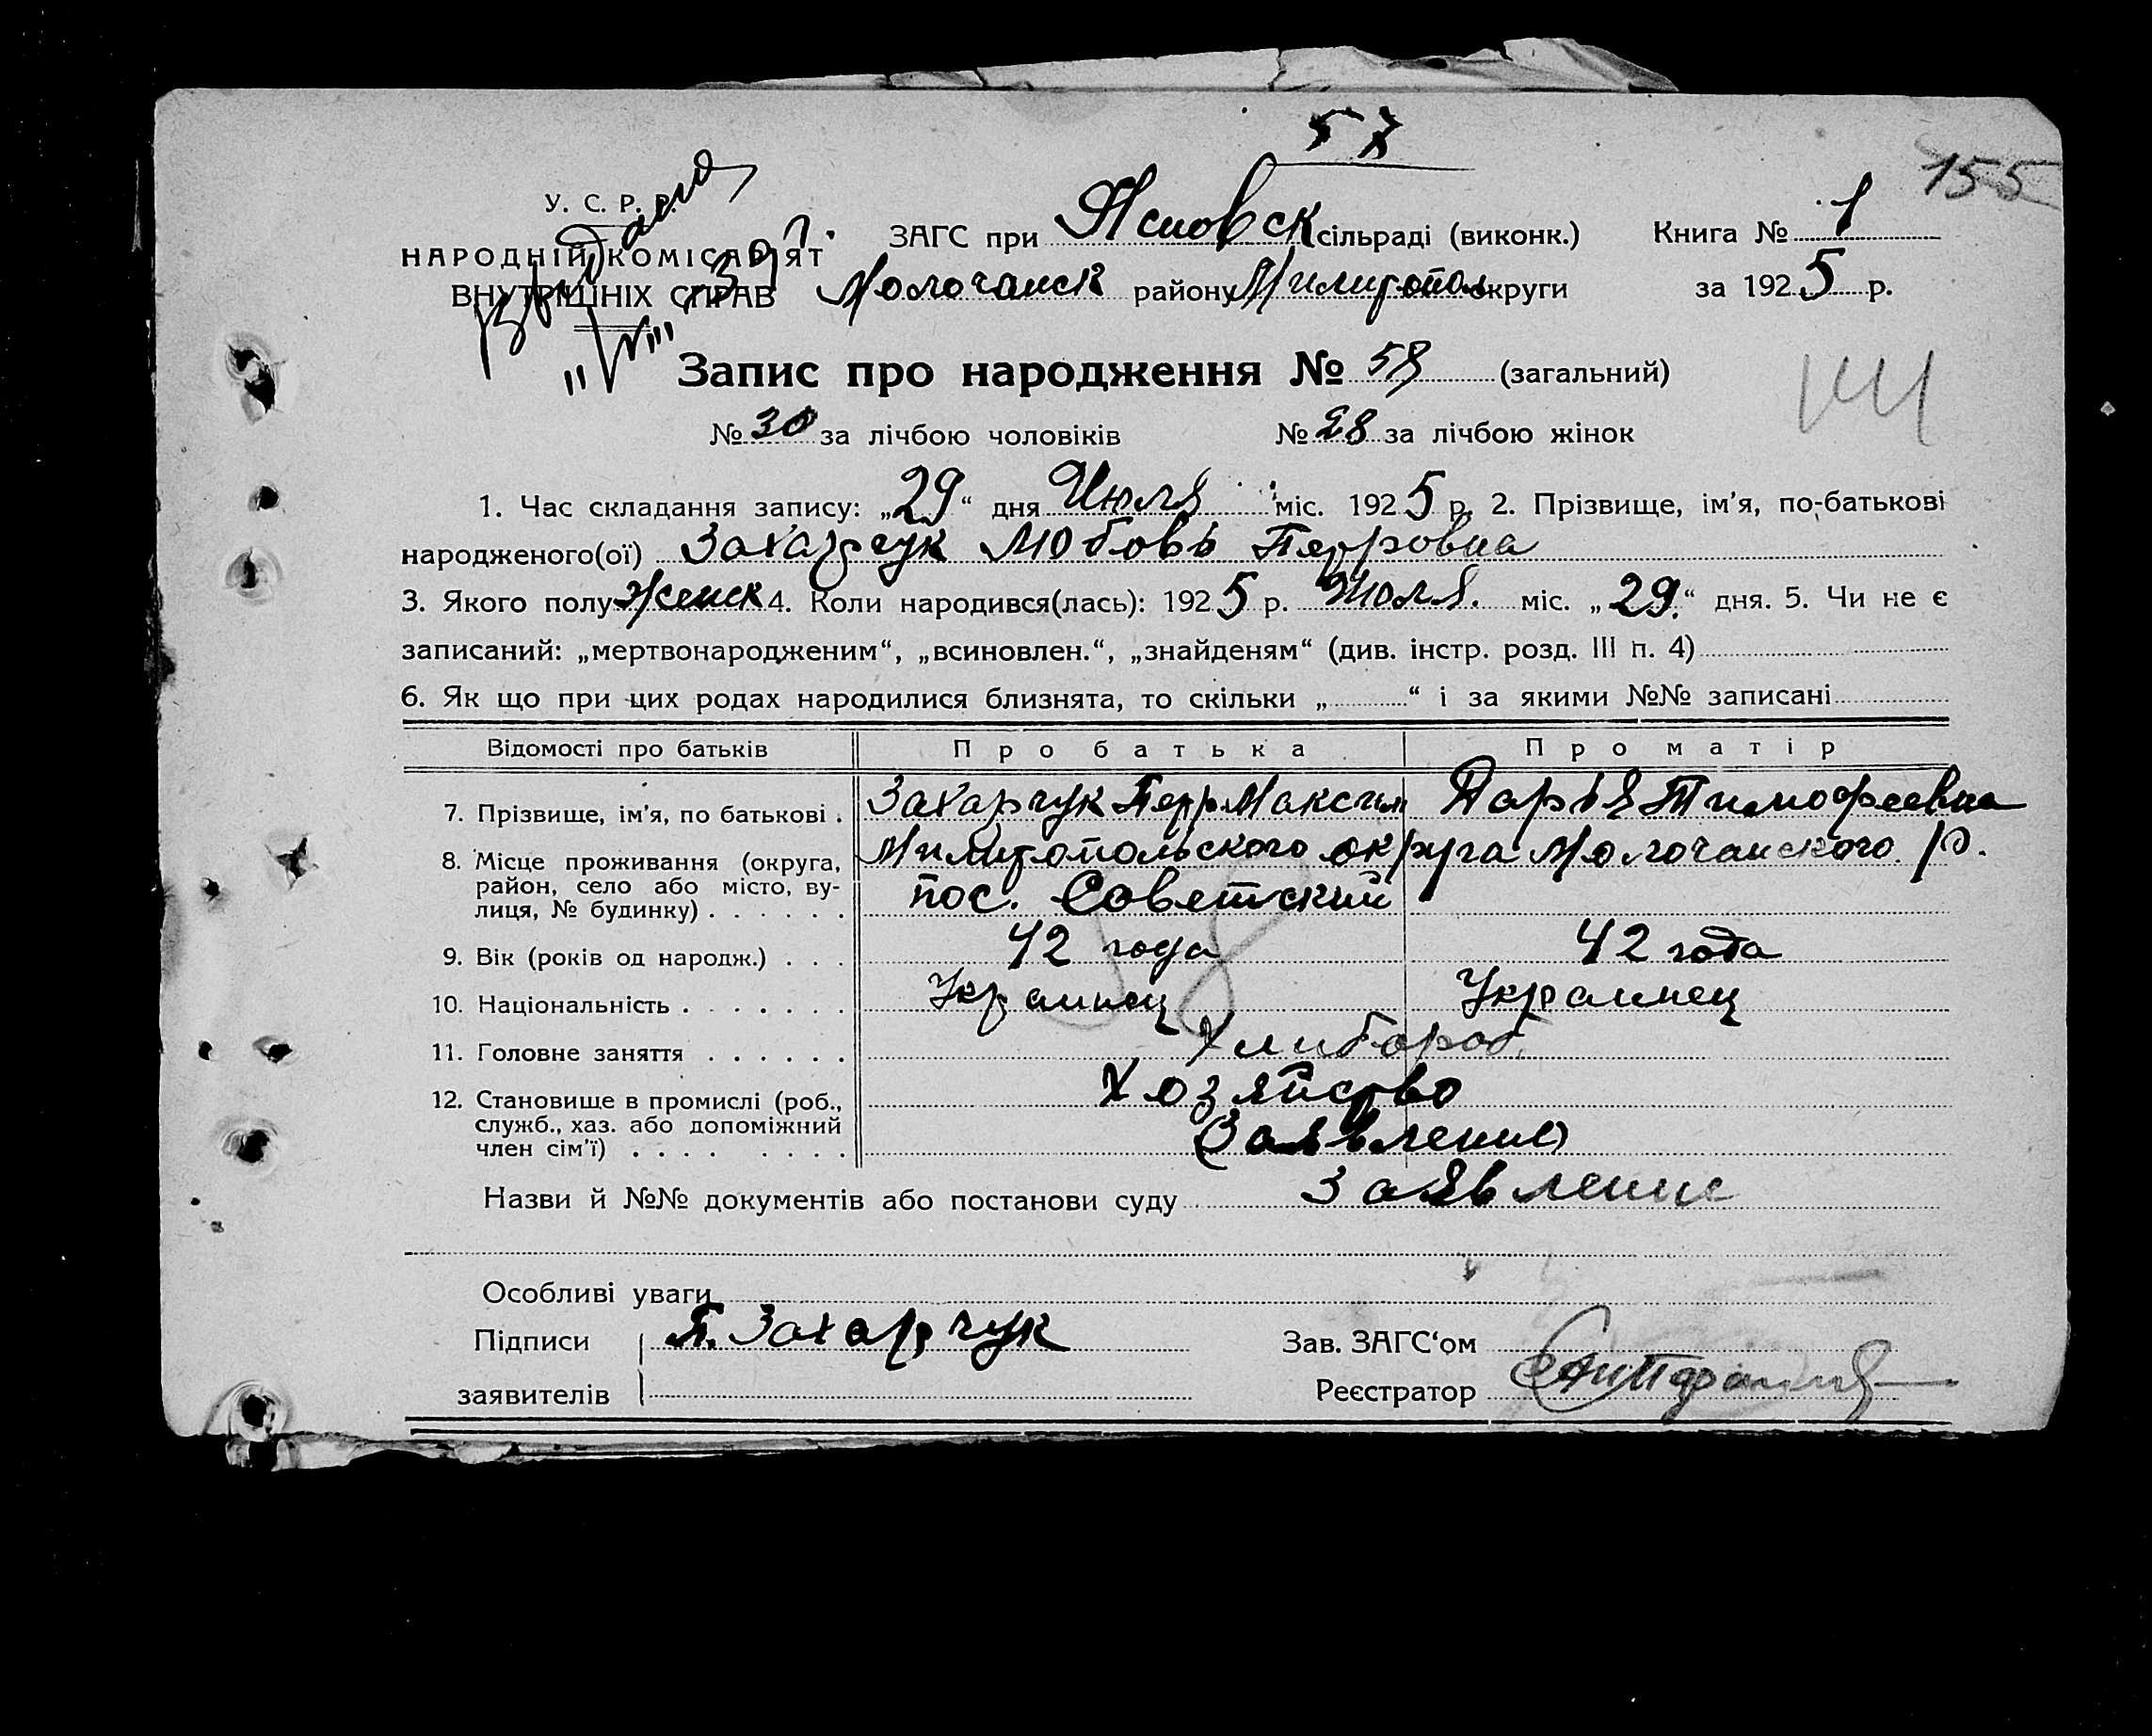 57
155
У. С. Р. Р.
НАРОДНІЙ КОМІСАРІЯТ
ВНУТРІШНІХ СПРАВ
ЗАГС при Ясновск сільраді (виконк.) Книга № 1
Молочанск району Милитополь округи за 1925 р.
Запис про народження № 58 (загальний)
№ 30 за лічбою чоловіків № 28 за лічбою жінок
1. Час складання запису: „29“ дня Июля міс. 1925 р. 2. Прізвище, ім'я, по-батькові
народженого(ої) Захарчук Любовь Петровна
3. Якого полу Женск 4. Коли народився(лась): 1925 р. Июля. міс. „29.“ дня. 5. Чи не є
записаний: „мертвонародженим“, „всиновлен.“, „знайденям“ (див. інстр. розд. III п. 4)
6. Як що при цих родах народилися близнята, то скільки „ “ і за якими №№ записані
Відомості про батьків Про батька Про матір
7. Прізвище, ім'я, по батькові . Захарчук Петр Максим Дарья Тимофеевна
8. Місце проживання (округа, Милитопольского округа Молочанского р.
район, село або місто, ву- пос. Советский
лиця, № будинку) . . . . . .
9. Вік (років од народж.) . . . 42 года 42 года
10. Національність . . . . . . . Украинец Украинец
11. Головне заняття . . . . . . Хлибороб
12. Становище в промислі (роб., Хозяйство
служб., хаз. або допоміжний (Заявление)
член сім'ї) . . . . . . . .
Назви й №№ документів або постанови суду Заявление
Особливі уваги
Підписи П. Захарчук Зав. ЗАГС‘ом
заявителів Реєстратор